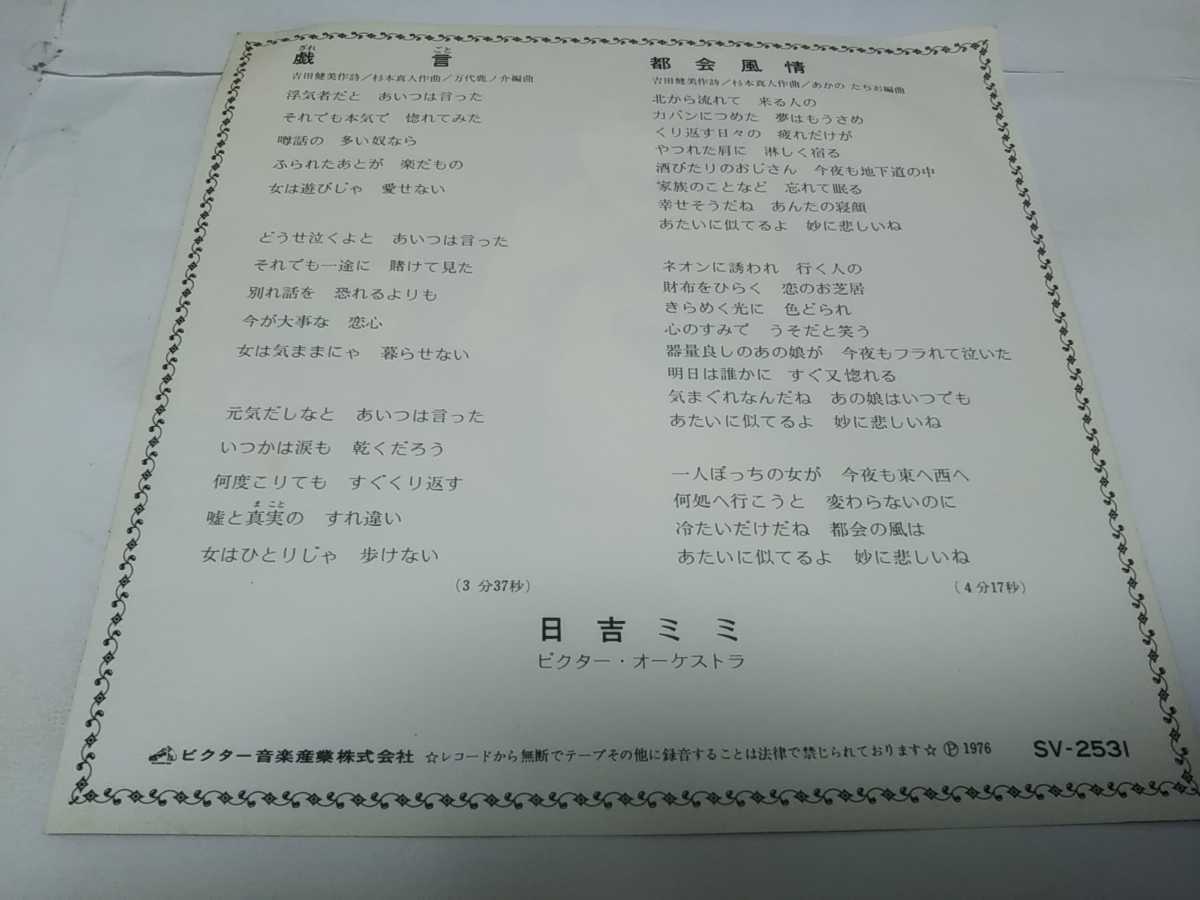 戯言
ざれ ごと
吉田健美作詩／杉本真人作曲／万代鹿ノ介編曲
浮気者だと　あいつは言った
それでも本気で　惚れてみた
噂話の　多い奴なら
ふられたあとが　楽だもの
女は遊びじゃ　愛せない
どうせ泣くよと　あいつは言った
それでも一途に　賭けて見た
別れ話を　恐れるよりも
今が大事な　恋心
女は気ままにゃ　暮らせない
元気だしなと　あいつは言った
いつかは涙も　乾くだろう
何度こりても　すぐくり返す
まこと
嘘と真実の　すれ違い
女はひとりじゃ　歩けない
(3分37秒)
都会風情
吉田健美作詩／杉本真人作曲／あかのたちお編曲
北から流れて　来る人の
カバンにつめた　夢はもうさめ
くり返す日々の　疲れだけが
やつれた肩に　淋しく宿る
酒びたりのおじさん　今夜も地下道の中
家族のことなど　忘れて眠る
幸せそうだね　あんたの寝顔
あたいに似てるよ　妙に悲しいね
ネオンに誘われ　行く人の
財布をひらく　恋のお芝居
きらめく光に　色どられ
心のすみで　うそだと笑う
器量良しのあの娘が　今夜もフラれて泣いた
明日は誰かに　すぐ又惚れる
気まぐれなんだね　あの娘はいつでも
あたいに似てるよ　妙に悲しいね
一人ぽっちの女が　今夜も東へ西へ
何処へ行こうと　変わらないのに
冷たいだけだね　都会の風は
あたいに似てるよ　妙に悲しいね
(4分17秒)
日吉ミミ
ビクター・オーケストラ
ビクター音楽産業株式会社 ☆レコードから無断でテープその他に録音することは法律で禁じられております☆ Ⓟ 1976 SV-2531